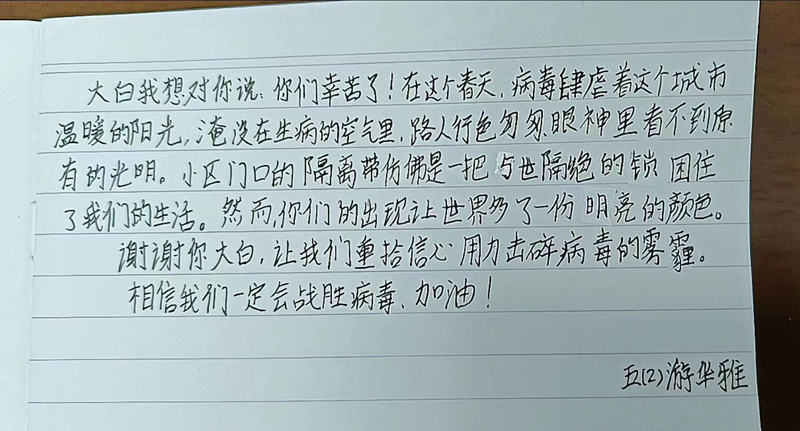 大白我想对你说：你们幸苦了！在这个春天，病毒肆虐着这个城市
温暖的阳光，淹没在生病的空气里，路人行色匆匆，眼神里看不到原
有的光明。小区门口的隔离带仿佛是一把与世隔绝的锁困住
了我们的生活。然而，你们的出现让世界多了一份明亮的颜色。
谢谢你大白，让我们重拾信心用力击碎病毒的雾霾。
相信我们一定会战胜病毒、加油！
五(2)游华雅